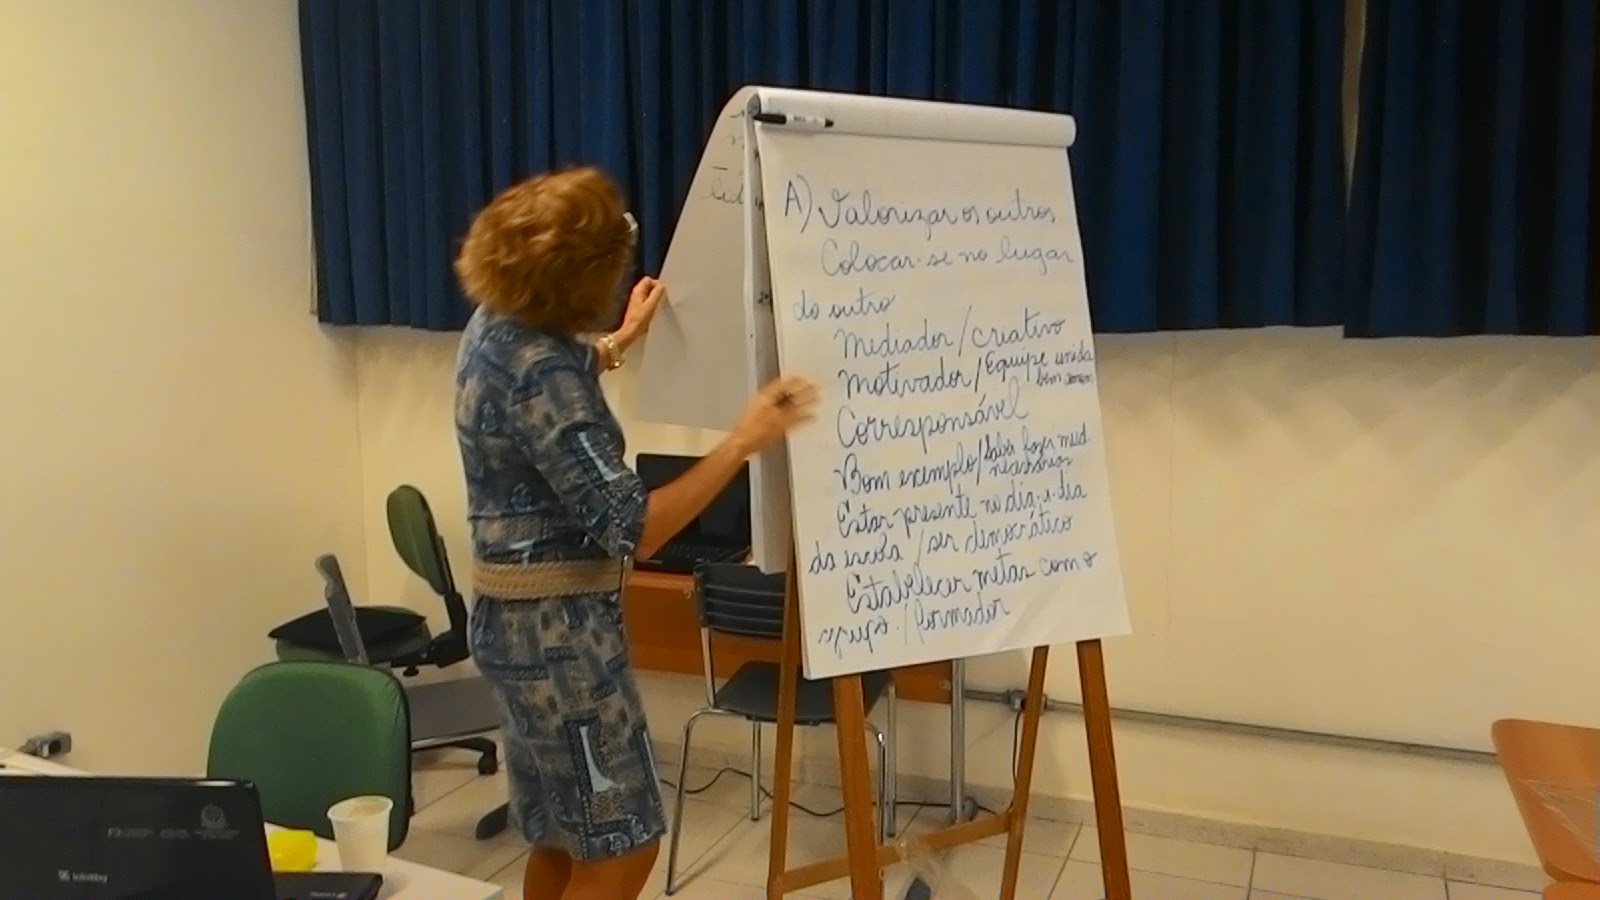 A) Valorizar os outros
Colocar-se no lugar
do outro
Mediador / criativo
Motivador / Equipe unida
bem
Corresponsável
Bom exemplo / Saber fazer med.
necessárias
Estar presente no dia-a-dia
da escola / ser democrático
Estabelecer metas com o
grupo. / formador